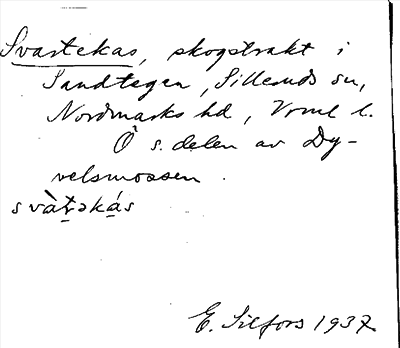 Svartekas, skogstrakt i
Sandtegen, Silleruds sn,
Nordmarks hd, Vrml l.
Ö s. delen av Dy-
velsmossen.
svàt̠əká̠s
E. Silfors 1937